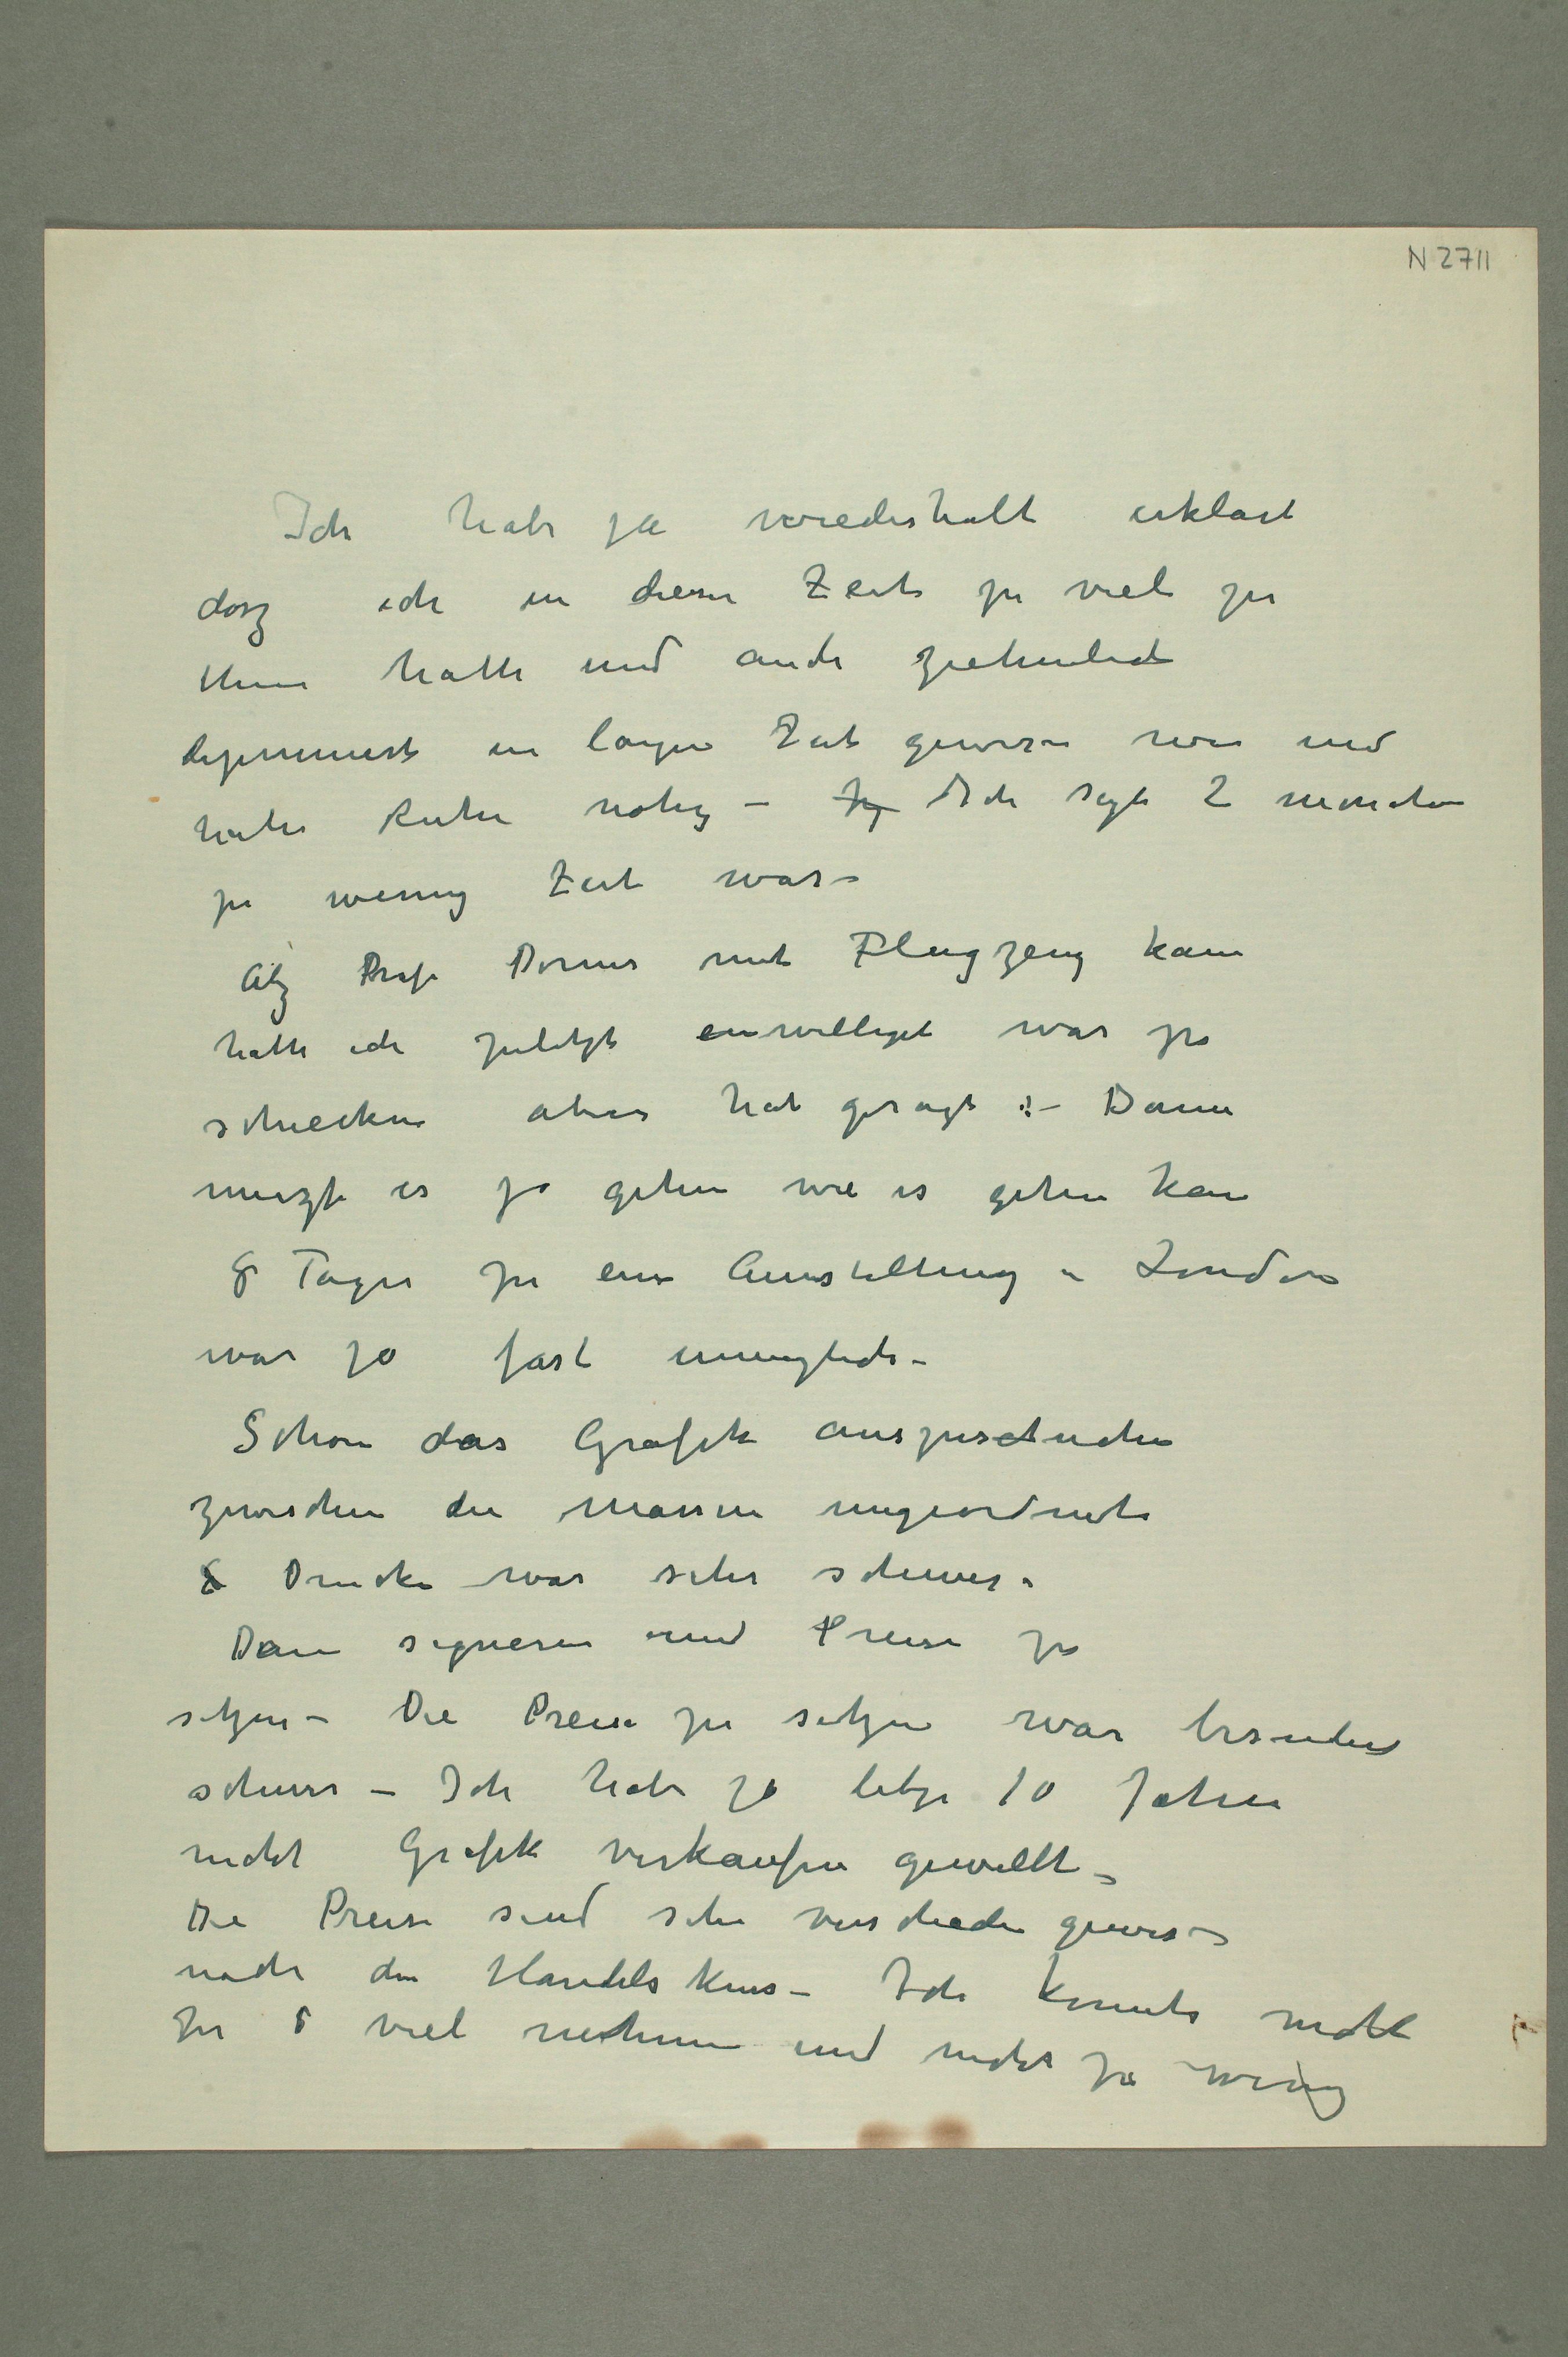 N 2711
Ich habe ja wiederhalt erklärt
dasz ich in dieser Zeit zu viel zu
thun hatte und auch ziehmlich
in langer Zeit gewesen war und
hatte Ruhe nötig – Ich sagte 2 monaten
zu wenig Zeit war –
Alz Prof Dorner mit Flugzeug kam
hatte ich zuletzt einwilliget was zu
schicken aber hat gesagt :– Dann
muszte es ja gehen wie es gehen kan
8 Tager zu eine Ausstellung in London
war ja fast unmöglich –
Schon das Grafik auszusuchen
zwischen die massen ungeordnete
Drucke war sehr schwer.
Dann signeren und Preise zu
setzen – Die Preise zu setzen war besonders
schwer – Ich habe ja letze 10 Jahre
nicht Grafik verkaufen gewollt –
Die Preise sind sehr verschieden gewesen
nach den Handelskurs – Ich konnte nicht
zu viel nehmen und nicht zu wenig